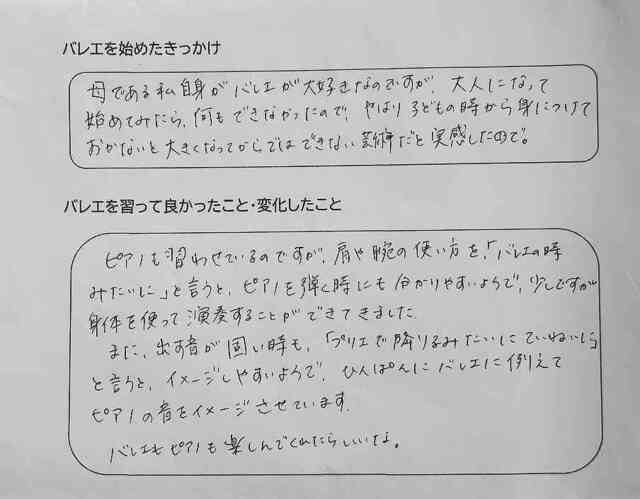 バレエを始めたきっかけ
母である私自身がバレエが大好きなのですが、大人になって
始めてみたら、何もできなかったので、やはり子どもの時から身につけて
おかないと大きくなってからではできない芸術だと実感したので。
バレエを習って良かったこと・変化したこと
ピアノも習わせているのですが、肩や腕の使い方を、「バレエの時
みたいに」と言うと、ピアノを弾く時にも分かりやすいようで、少しですが
身体を使って演奏することができてきました。
また、出す音が固い時も、「プリエで降りるみたいにていねいに」
と言うと、イメージしやすいようで、ひんぱんにバレエに例えて
ピアノの音をイメージさせています。
バレエもピアノも楽しんでくれたらいいな。